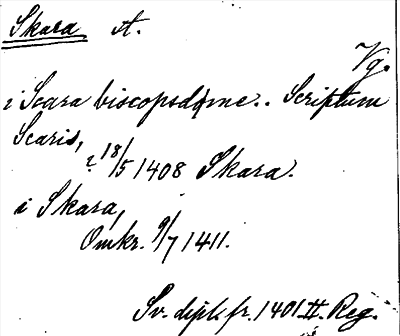 Skara, st.
Vg.
i Scara biscopsdøme.. Scriptum
Scaris,
? 18/5 1408 Skara.
i Skara,
Omkr. 9/7 1411.
Sv. dipl. fr. 1401. II. Reg.